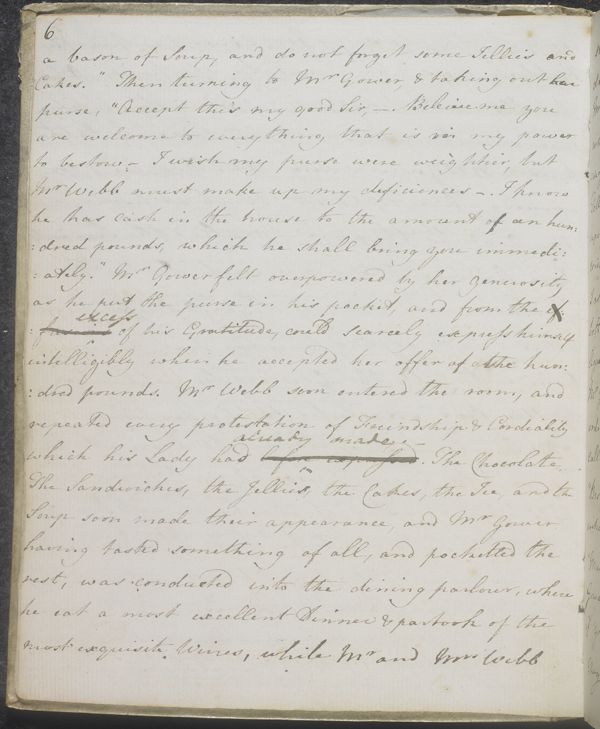 6
a bason of Soup, and do not forget some Jellies and
Cakes." Then turning to Mr Gower, & taking out her
purse, "Accept this my good Sir, —. Beleive me you
are welcome to everything that is in my power
to bestow.— I wish my purse were weightier, but
Mr Webb must make up my deficiences —. I know
he has cash in the house to the amount of an hun:
:dred pounds, which he shall bring you immedi:
:ately." Mr Gower felt overpowered by her generosity
as he put the purse in his pocket, and from the
excess
of his Gratitude, could scarcely express himself
intelligibly when he accepted her offer of the hun:
:dred pounds. Mr Webb soon entered the room, and
repeated every protestation of Friendship & Cordiality
already made —
which his Lady had before expressed. The Chocolate,
The Sandwiches, the Jellies, the Cakes, the Ice, and the
Soup soon made their appearance, and Mr Gower
having tasted something of all, and pocketted the
rest, was conducted into the dining parlour, where
he eat a most excellent Dinner & partook of the
most exquisite Wines, while Mr and Mrs Webb